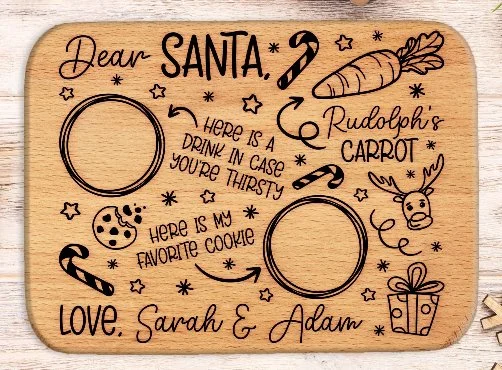 Dear SANTA,
Rudolph's
CARROT
HERE IS A
DRINK IN CASE
YOU'RE THIRSTY
HERE IS MY
FAVORITE COOKIE
LOVE, Sarah & Adam